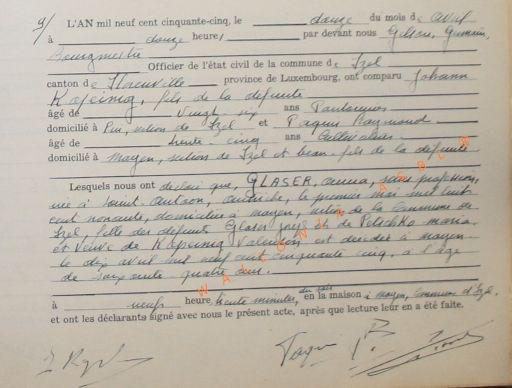 9/ L'AN mil neuf cent cinquante-cinq, le douze du mois de avril
à douze heure, par devant nous Gillson, Germain,
Bourgmestre Officier de l'état civil de la commune de Izel
canton de Florenville province de Luxembourg, ont comparu Johann
Kopeinig, fils de la défunte
âgé de vingt-six ans
domicilié à Pin, section de Izel et Paquis Raymond
âgé de trente-cinq ans Cultivateur
domicilié à Moyen, section de Izel et beau-fils de la défunte
Lesquels nous ont déclaré que, GLASER, Anna, sans profession,
née à Autriche, le premier mai mil huit
cent nonante, domiciliée à Moyen, section de la Commune de
Izel, fille des défunts Glaser et de Maria
et veuve de Kopeinig Valentin est décédée à Moyen
le dix avril mil neuf cent cinquante cinq, à l'âge
de soixante-quatre ans.
à neuf heure trente minutes, en la maison à Moyen, Commune d'Izel.
et ont les déclarants signé avec nous le présent acte, après lecture leur en a été faite.